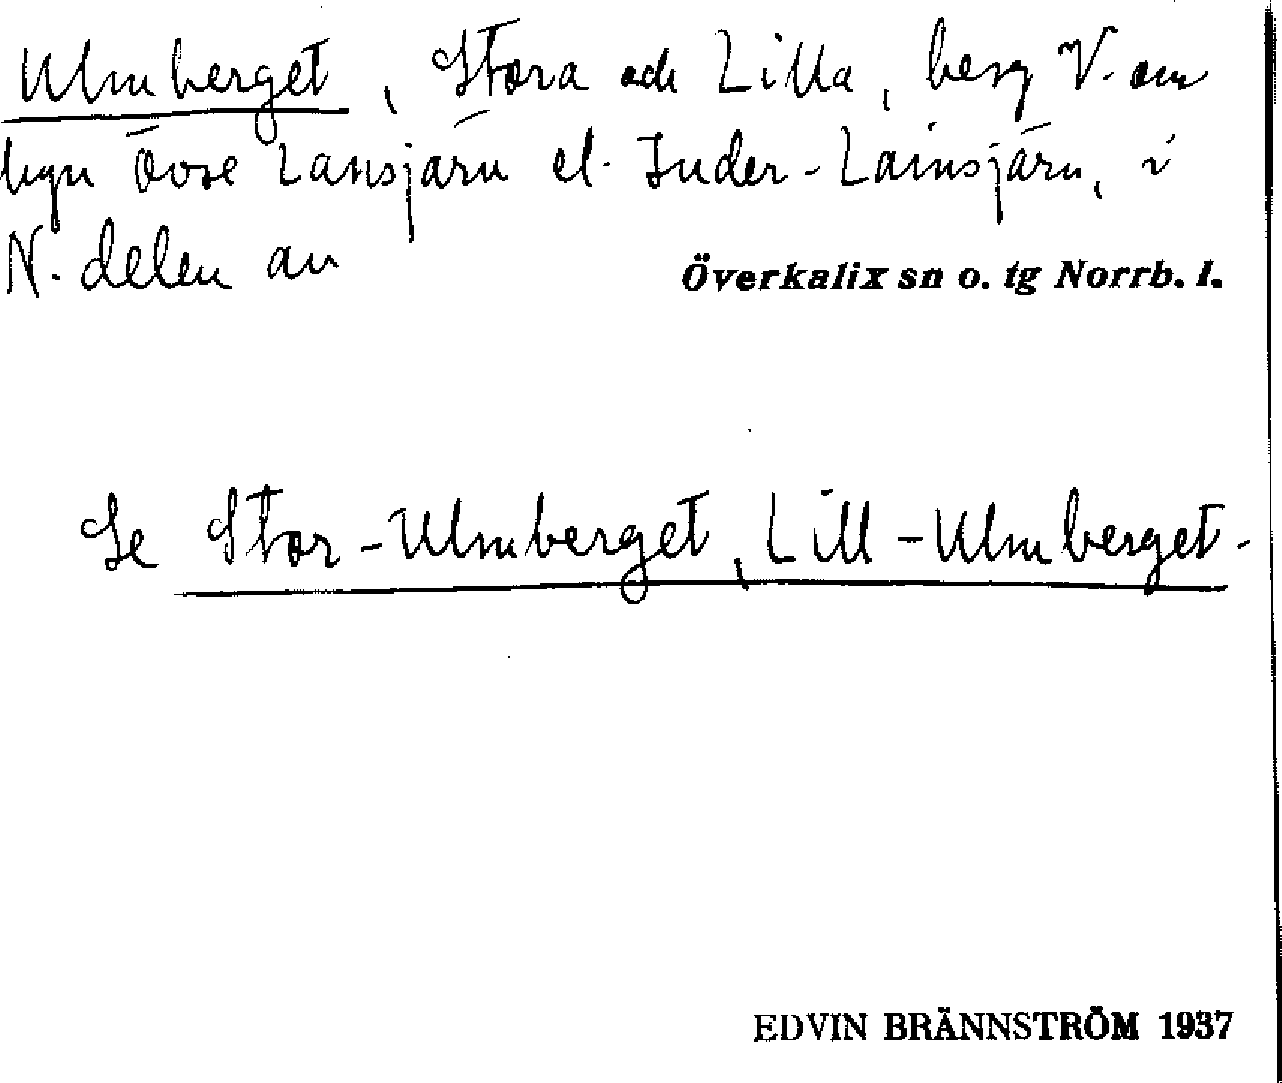 Ulmberget, Stora och Lilla, berg V. om
byn Övre Lansjärv el. Inder-Lainsjärv, i
N. delen av
Överkalix sn o. tg Norrb. l.
Se Stor-Ulmberget, Lill-Ulmberget.
EDVIN BRÄNNSTRÖM 1937